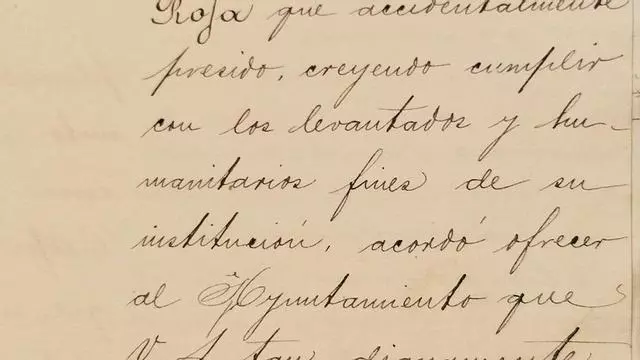 Roja que accidentalmente
presido, creyendo cumplir
con los levantados y hu-
manitarios fines de su
institución, acordó ofrecer
al Ayuntamiento que
V. tan dignamente